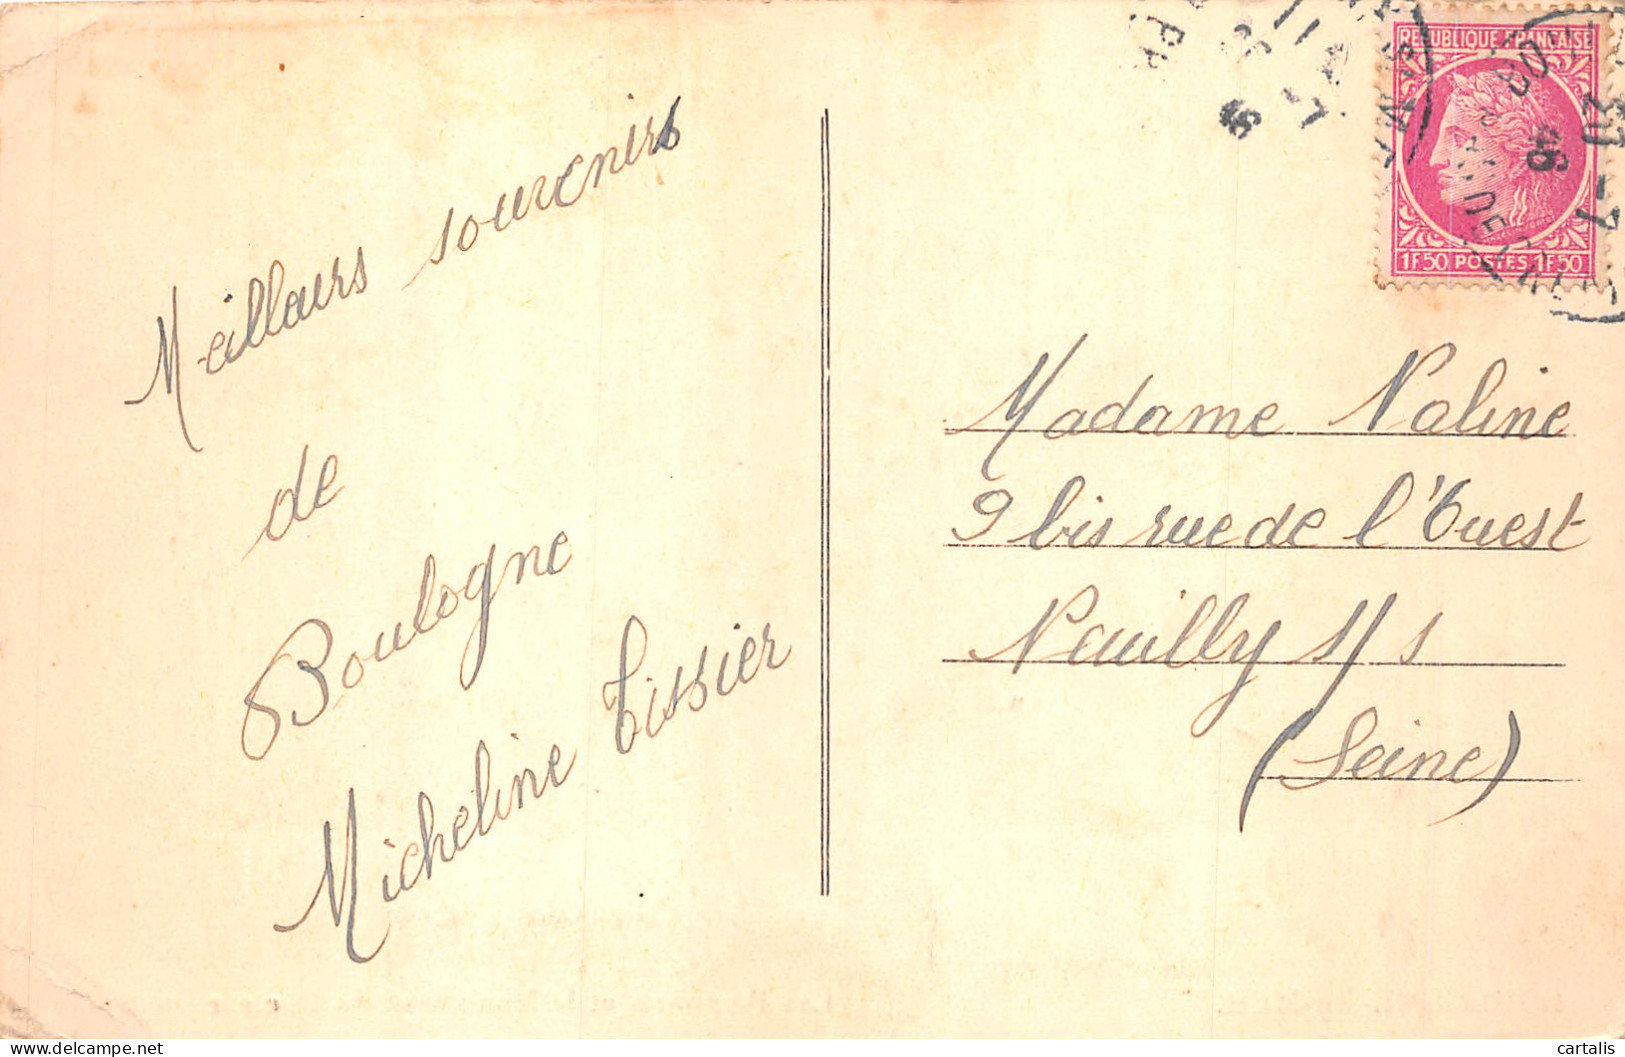 Meilleurs souvenirs
de
Boulogne
Micheline Tissier
REPUBLIQUE FRANÇAISE
1F50 POSTES 1F50
Madame Naline
9 bis rue de l'Ouest
Neuilly s/s
(Seine)
cartalis